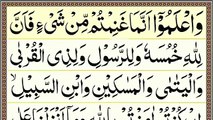 وَاعْلَمُوْۤا اَنَّمَا غَنِمْتُمْ مِّنْ شَیْءٍ فَاَنَّ
لِلّٰهِ خُمُسَهٗ وَ لِلرَّسُوْلِ وَ لِذِی الْقُرْبٰی
وَ الْیَتٰمٰی وَ الْمَسٰكِیْنِ وَ ابْنِ السَّبِیْلِ ۙ